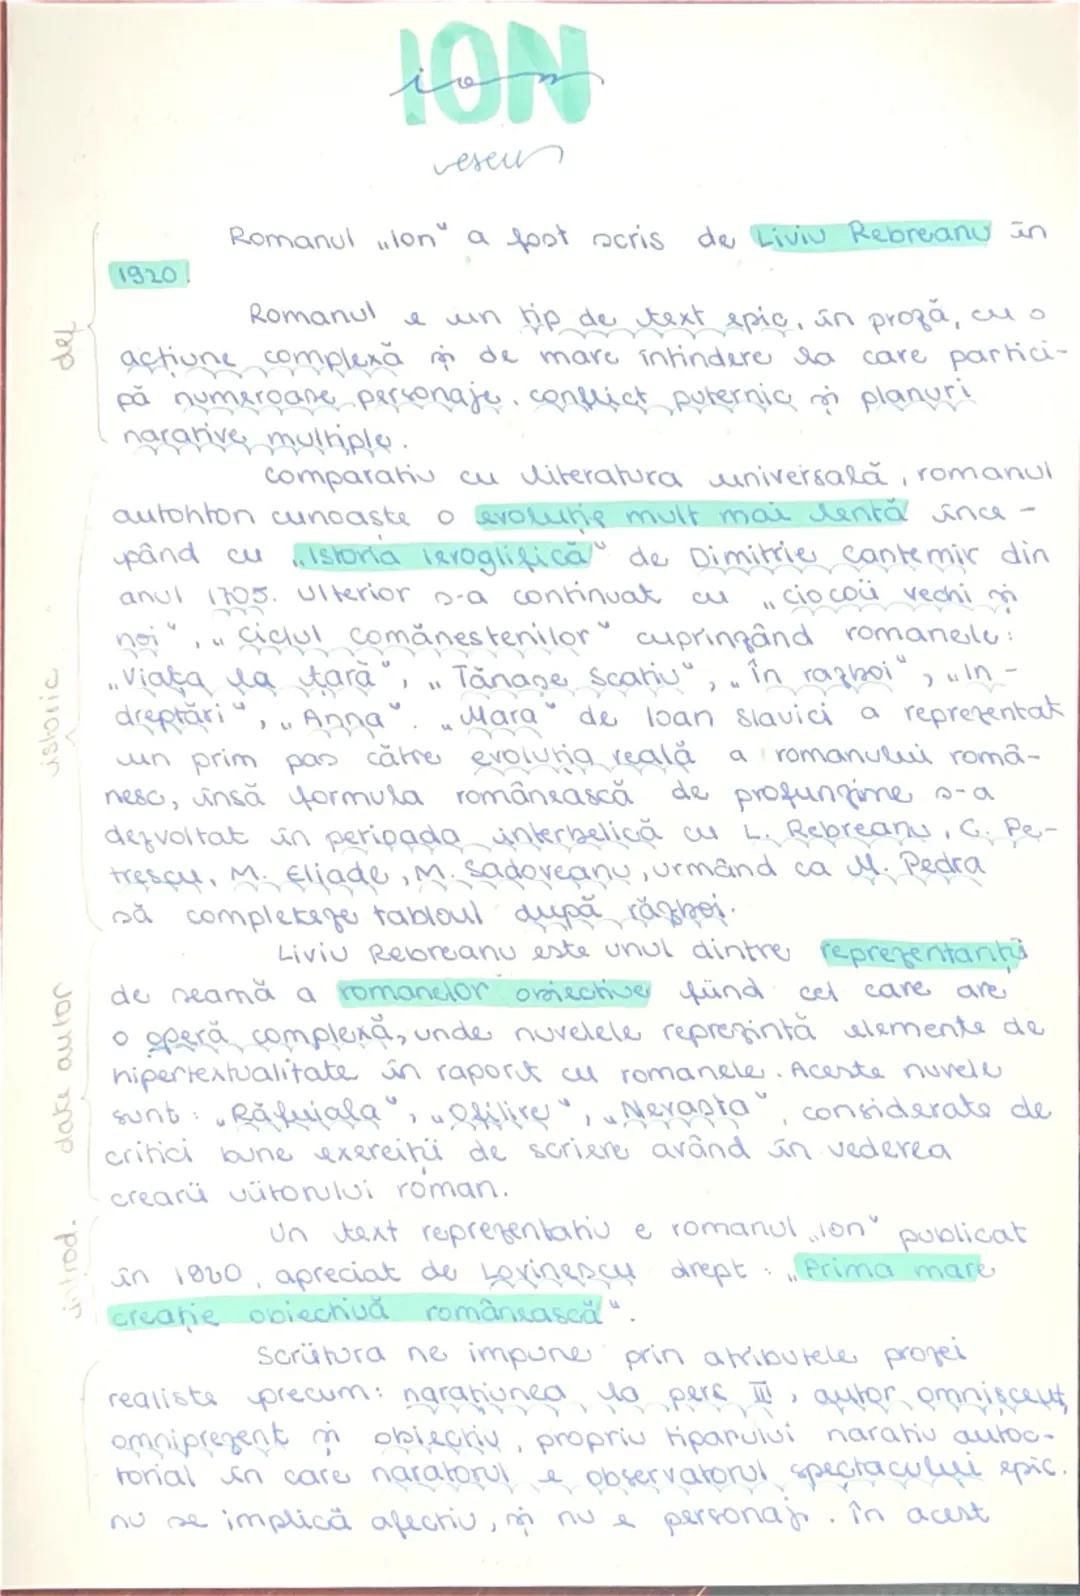 ION
ion
eseu
Romanul „Ion" a fost scris de Liviu Rebreanu în
1920!
def
Romanul e un tip de text epic, în proză, cu o
acțiune complexă și de mare întindere la care partici-
pă numeroase personaje, conflict puternic și planuri
narative multiple.
istoric
Comparativ cu literatura universală, romanul
autohton cunoaște o evoluție mult mai lentă înce-
pând cu „Istoria ieroglifică" de Dimitrie Cantemir din
anul 1705. Ulterior s-a continuat cu „Ciocoii vechi și
noi", „Ciclul Comăneștenilor" cuprinzând romanele:
„Viața la țară", „Tănase Scatiu", „În razboi", „În-
dreptări", „Anna". „Mara" de Ioan Slavici a reprezentat
un prim pas către evoluția reală a romanului româ-
nesc, însă formula românească de profunzime s-a
dezvoltat în perioada interbelică cu L. Rebreanu, C. Pe-
trescu, M. Eliade, M. Sadoveanu, urmând ca M. Pedra
să completeze tabloul după război.
date autor
Liviu Rebreanu este unul dintre reprezentanții
de seamă a romanelor obiective fiind cel care are
o operă complexă, unde nuvelele reprezintă elemente de
hipertextualitate în raport cu romanele. Aceste nuvele
sunt: „Răfuiala", „Ofilire", „Nevasta", considerate de
critici bune exerciții de scriere având în vederea
crearii viitorului roman.
introd.
Un text reprezentativ e romanul „Ion" publicat
în 1920, apreciat de Lovinescu drept: „Prima mare
creație obiectivă românească".
Scriitura ne impune prin atributele prozei
realiste precum: narațiunea la pers III, autor omniscent,
omniprezent și obiectiv, propriu tiparului narativ autoc-
torial în care naratorul e observatorul spectacului epic.
nu se implică afectiv, și nu e personaj. În acest